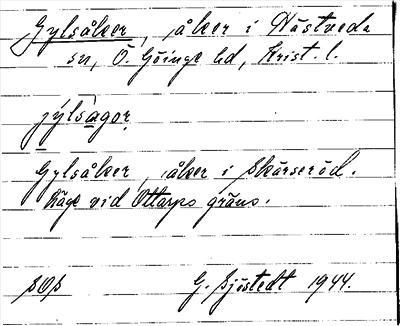 Gylsåker, åker i Hästveda
sn, Ö. Göinge hd, Krist. l.
jýlsagor
Gylsåker, åker i Skärseröd.
Läge vid Ottarps gräns.
SOS G. Sjöstedt 1944.